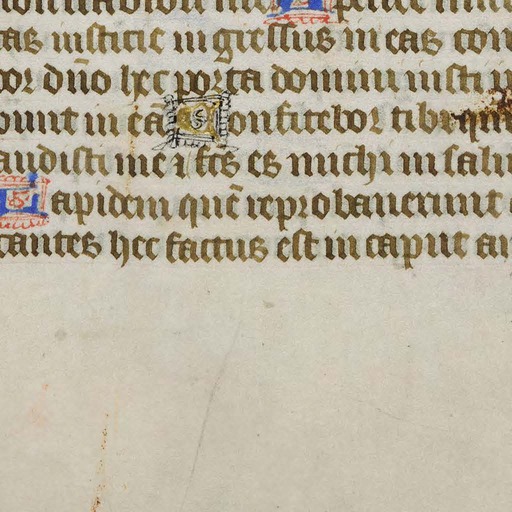 perite mi
tas iusticie in gressus in eas con
bor dño hec porta domini iusti in
bunt in eã Confitebor tibi qm
audisti me ⁊ fc̃s es michi in salu
Lapidem quẽ reprobauerunt e
cantes hec factus est in caput an